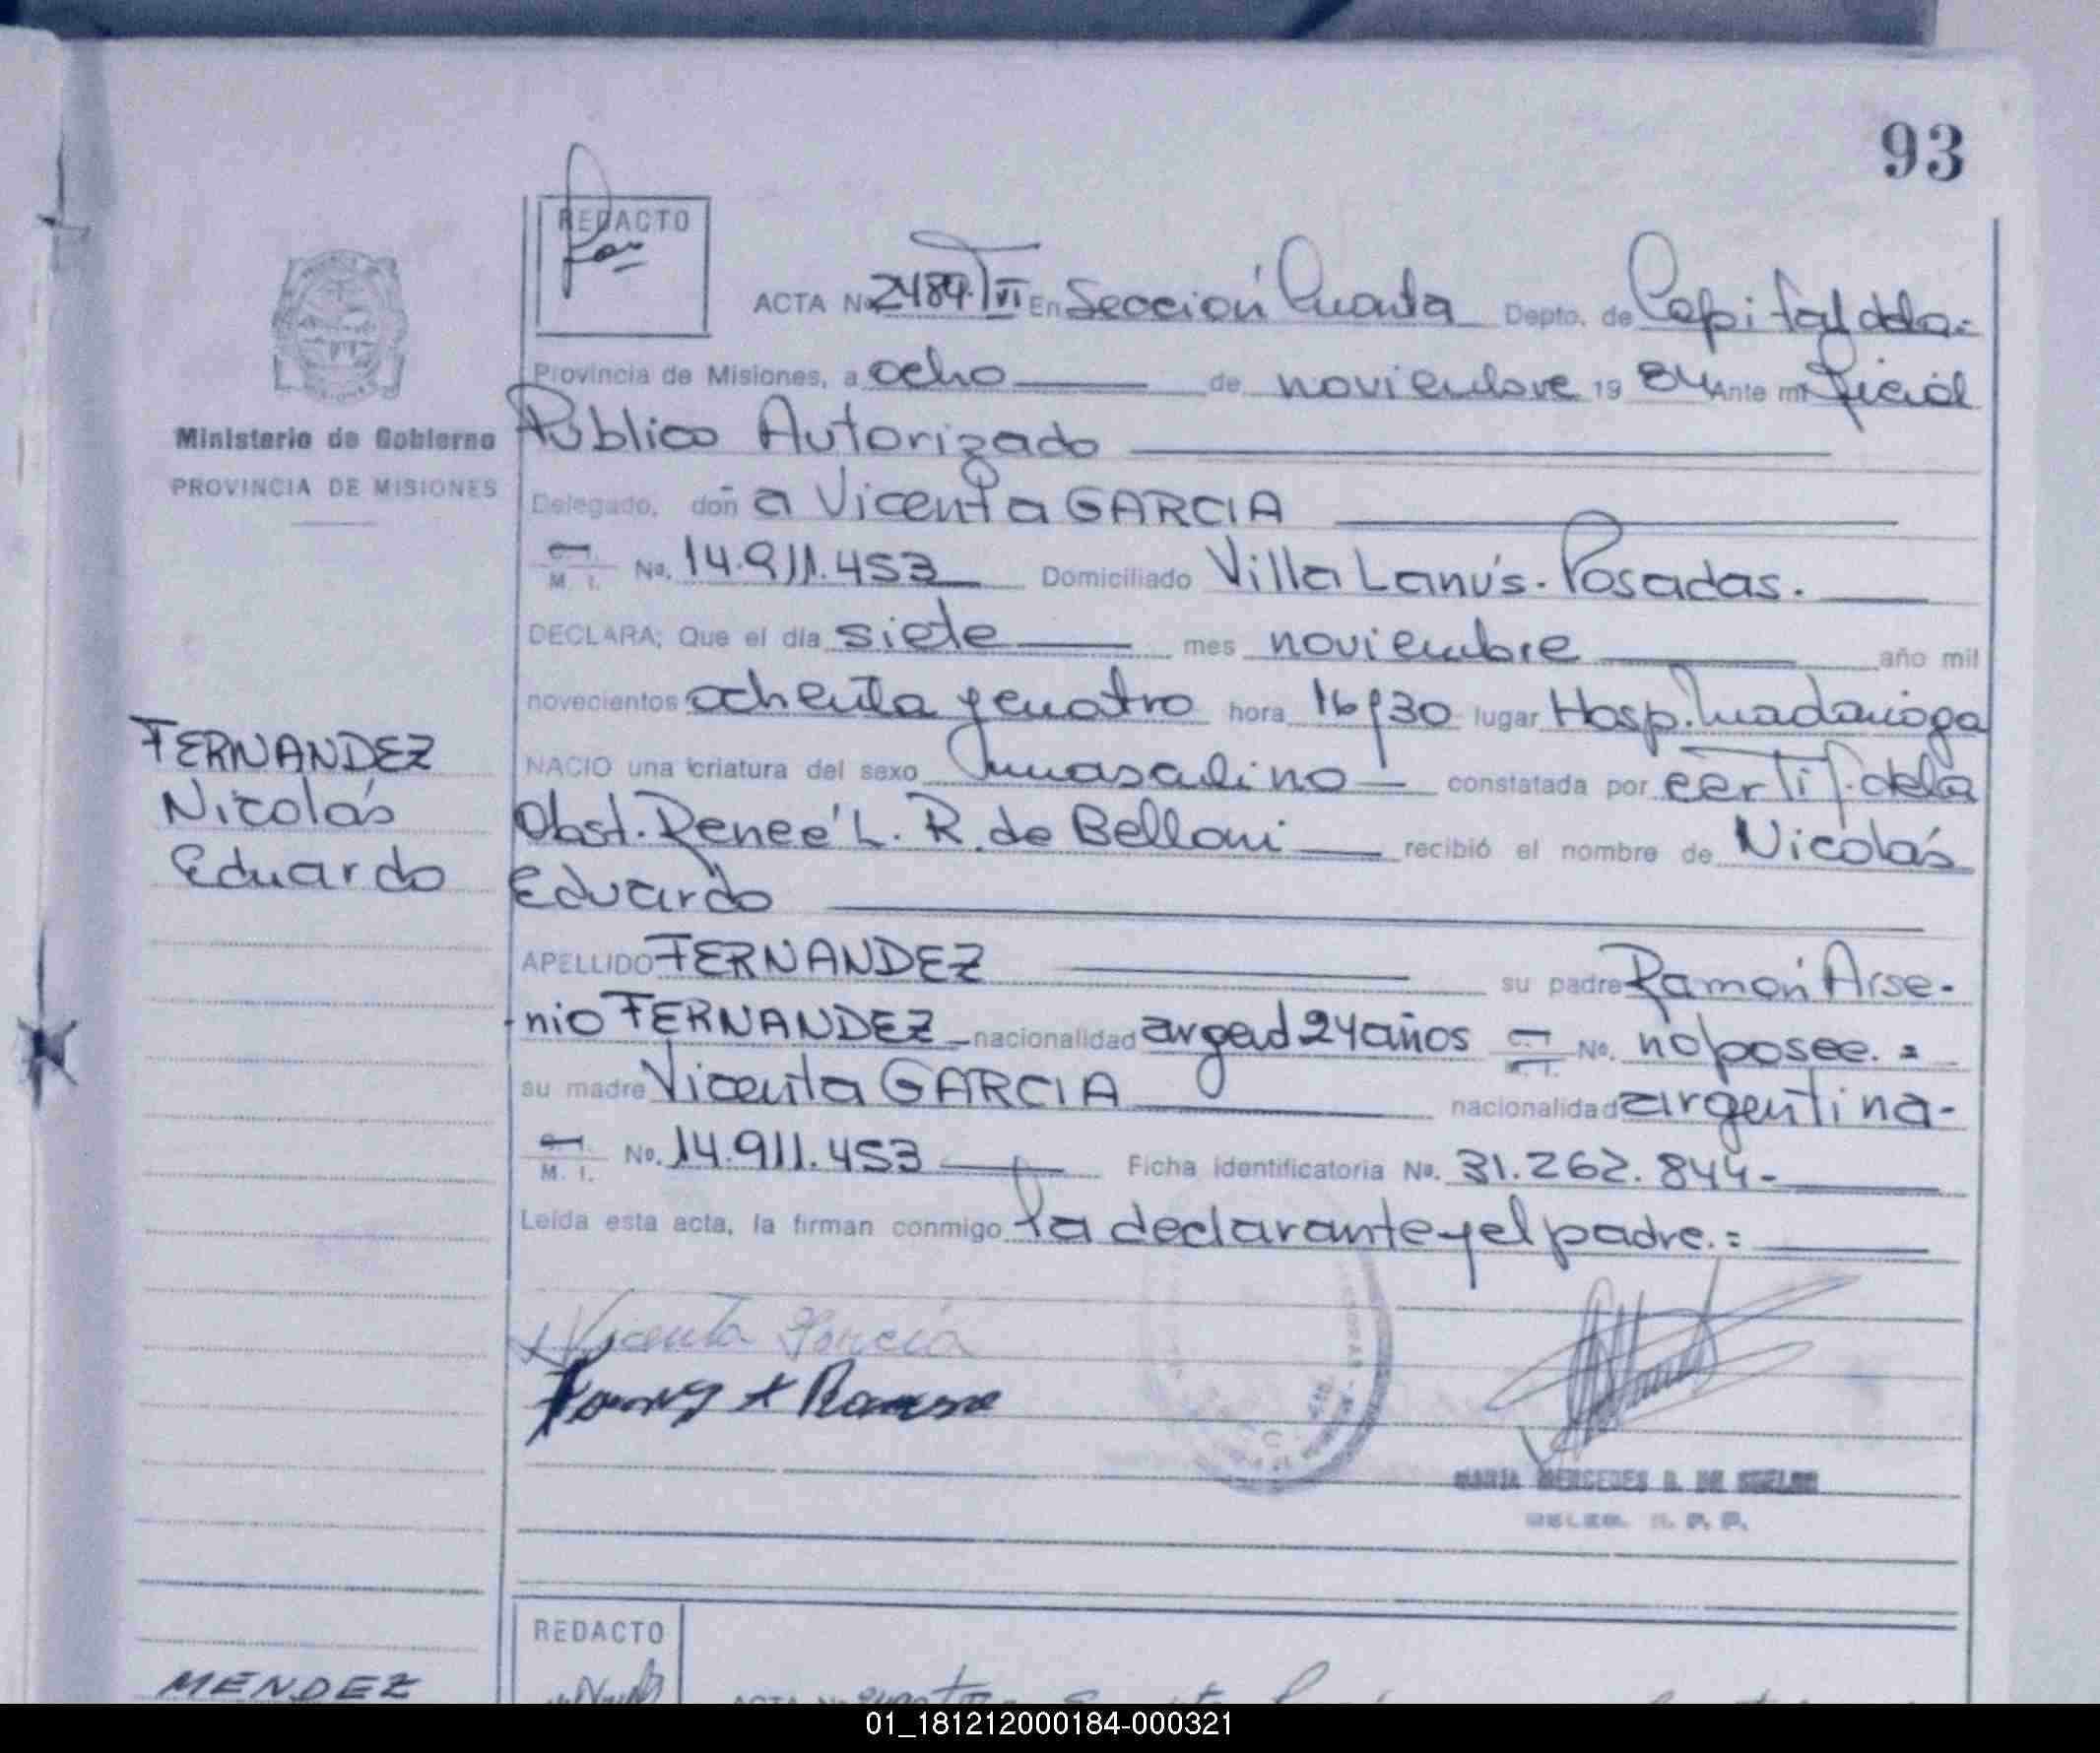 93
REDACTO
ACTA No 2489. T VI En Sección Cuarta Depto. de Capital dela-
Provincia de Misiones, a ocho de noviembre 19 84 Ante mi Oficial
Ministerio de Gobierno
PROVINCIA DE MISIONES
Público Autorizado
Delegado, doñ a Vicenta GARCIA
M. I. No. 14.911.453 Domiciliado Villa Lanús. Posadas.
DECLARA; Que el día siete mes noviembre año mil
novecientos ochenta y cuatro hora 16 y 30 lugar Hosp. Madariaga
FERNANDEZ
Nicolás
Eduardo
NACIO una criatura del sexo masculino constatada por certif. dela
Obst. Renee L. R. de Belloni recibió el nombre de Nicolás
Eduardo
APELLIDO FERNANDEZ su padre Ramón Arse-
nio FERNANDEZ nacionalidad argent 24 años No. no posee. =
su madre Vicenta GARCIA nacionalidad argentina-
M. I. No. 14.911.453 Ficha identificatoria No. 31.262.844-
Leída esta acta, la firman conmigo la declarante y el padre. =
Vicenta Garcia
Ramon
MARIA MERCEDES
REDACTO
MENDEZ
ACTA No
01_181212000184-000321